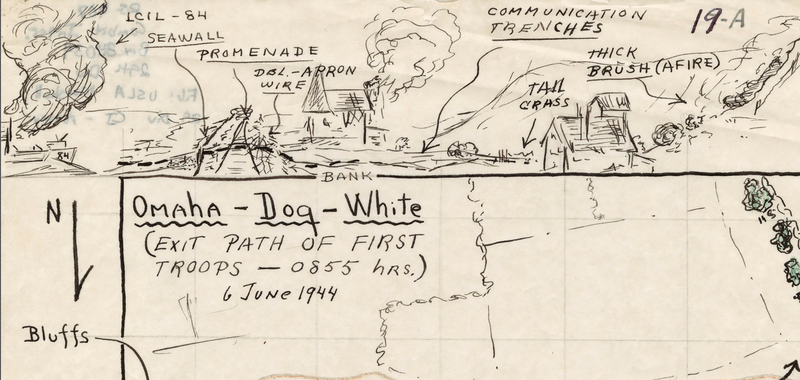 LCIL - 84
SEAWALL
PROMENADE
DBL. - APRON
WIRE
COMMUNICATION
TRENCHES
19-A
THICK
BRUSH (AFIRE)
TALL
GRASS
84
BANK
N
OMAHA - DOG - WHITE
(EXIT PATH OF FIRST
TROOPS — 0855 hrs.)
6 JUNE 1944
Bluffs